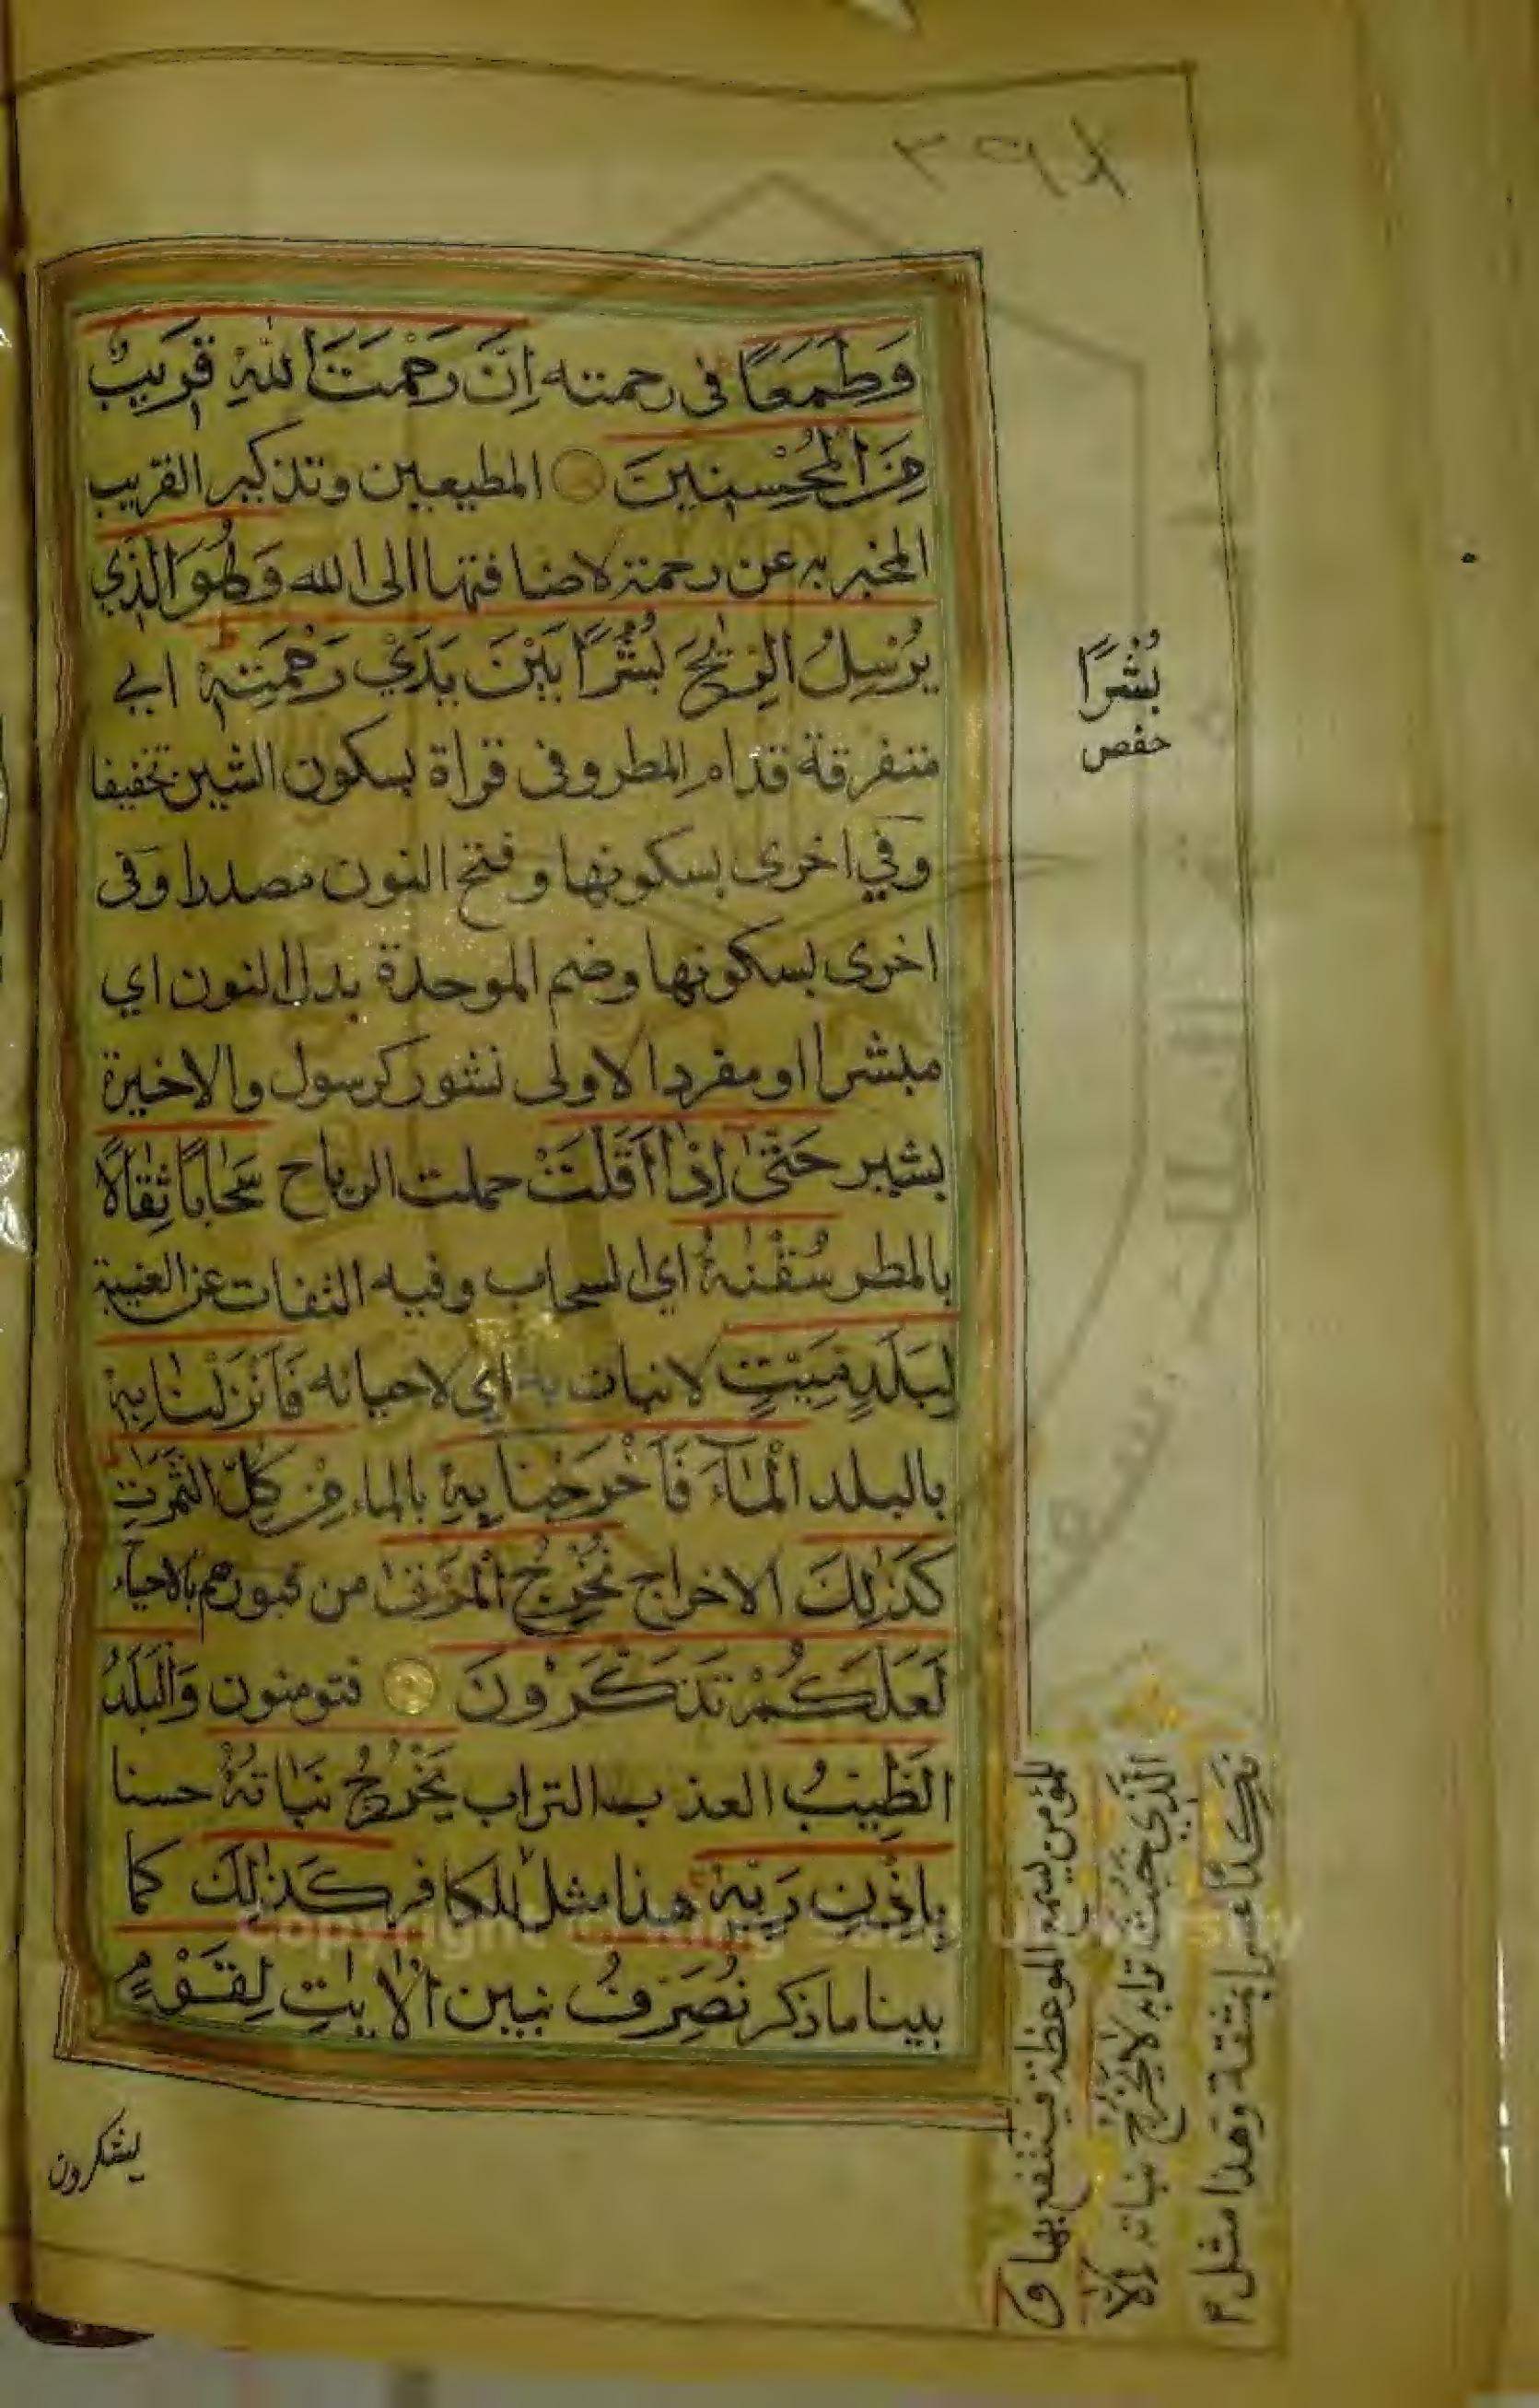 ٣٩٨
وَطَمَعًا في رحمته اِنَّ رَحْمَتَ اللّٰهِ قَرِيبٌ
مِنَ الْمُحْسِنِينَ المطيعين وتذكير القريب
المخبر به عن رحمة لاضافتها الى الله وَهُوَ الَّذِي
يُرْسِلُ الرِّيٰحَ نُشُرًا بَيْنَ يَدَيْ رَحْمَتِهٖ اي
متفرقة قدام المطر وفى قراة بسكون الشين تخفيفا
وفي اخرى بسكونها وفتح النون مصدرا وفى
اخرى بسكونها وضم الموحدة بدل النون اي
مبشرا ومفرد الاولى نشور كرسول والاخيرة
بشير حَتّٰىٓ اِذَا اَقَلَّتْ حملت الرياح سَحَابًا ثِقَالًا
بالمطر سُقْنٰهُ اي السحاب وفيه التفات عن الغيبة
لِبَلَدٍ مَيِّتٍ لا نبات به اي لاحيائه فَاَنْزَلْنَا بِهِ
بالبلد الْمَآءَ فَاَخْرَجْنَا بِهٖ بالماء مِنْ كُلِّ الثَّمَرٰتِ
كَذٰلِكَ الاخراج نُخْرِجُ الْمَوْتٰى من قبورهم بالاحياء
لَعَلَّكُمْ تَذَكَّرُونَ فتومنون وَالْبَلَدُ
الطَّيِّبُ العذب التراب يَخْرُجُ نَبَاتُهُ حسنا
بِاِذْنِ رَبِّهٖ هذا مثل للكافر كَذٰلِكَ كما
بينا ما ذكر نُصَرِّفُ نبين الْاٰيٰتِ لِقَوْمٍ
يشكرون
بُشْرًا
حفص
للمؤمن يسمع الموعظة فينتفع بها وَ
الَّذِي خَبُثَ ترابه لَا يَخْرُجُ نباته اِلَّا
نَكِدًا عسرا بمشقة وهذا مثل
Copyright © King Saud University
جامعة الملك سعود